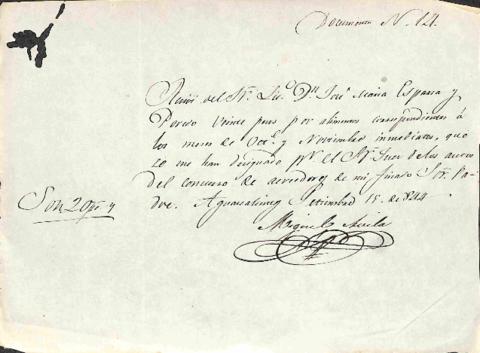 Documento N. 121.
Recivi del Sr. Lic.º Dn. José Maria Esparza y
Peredo veinte pesos por alimentos correspondientes á
los meses de Oct.e y Noviembre inmediatos, que
se me han designado pr. el Sr. Juez de los autos
del concurso de acreedores de mi finado Sr. Pa-
dre. Aguascalientes Setiembre 15. de 1844
Son 20 ps. "
Miguel Avila